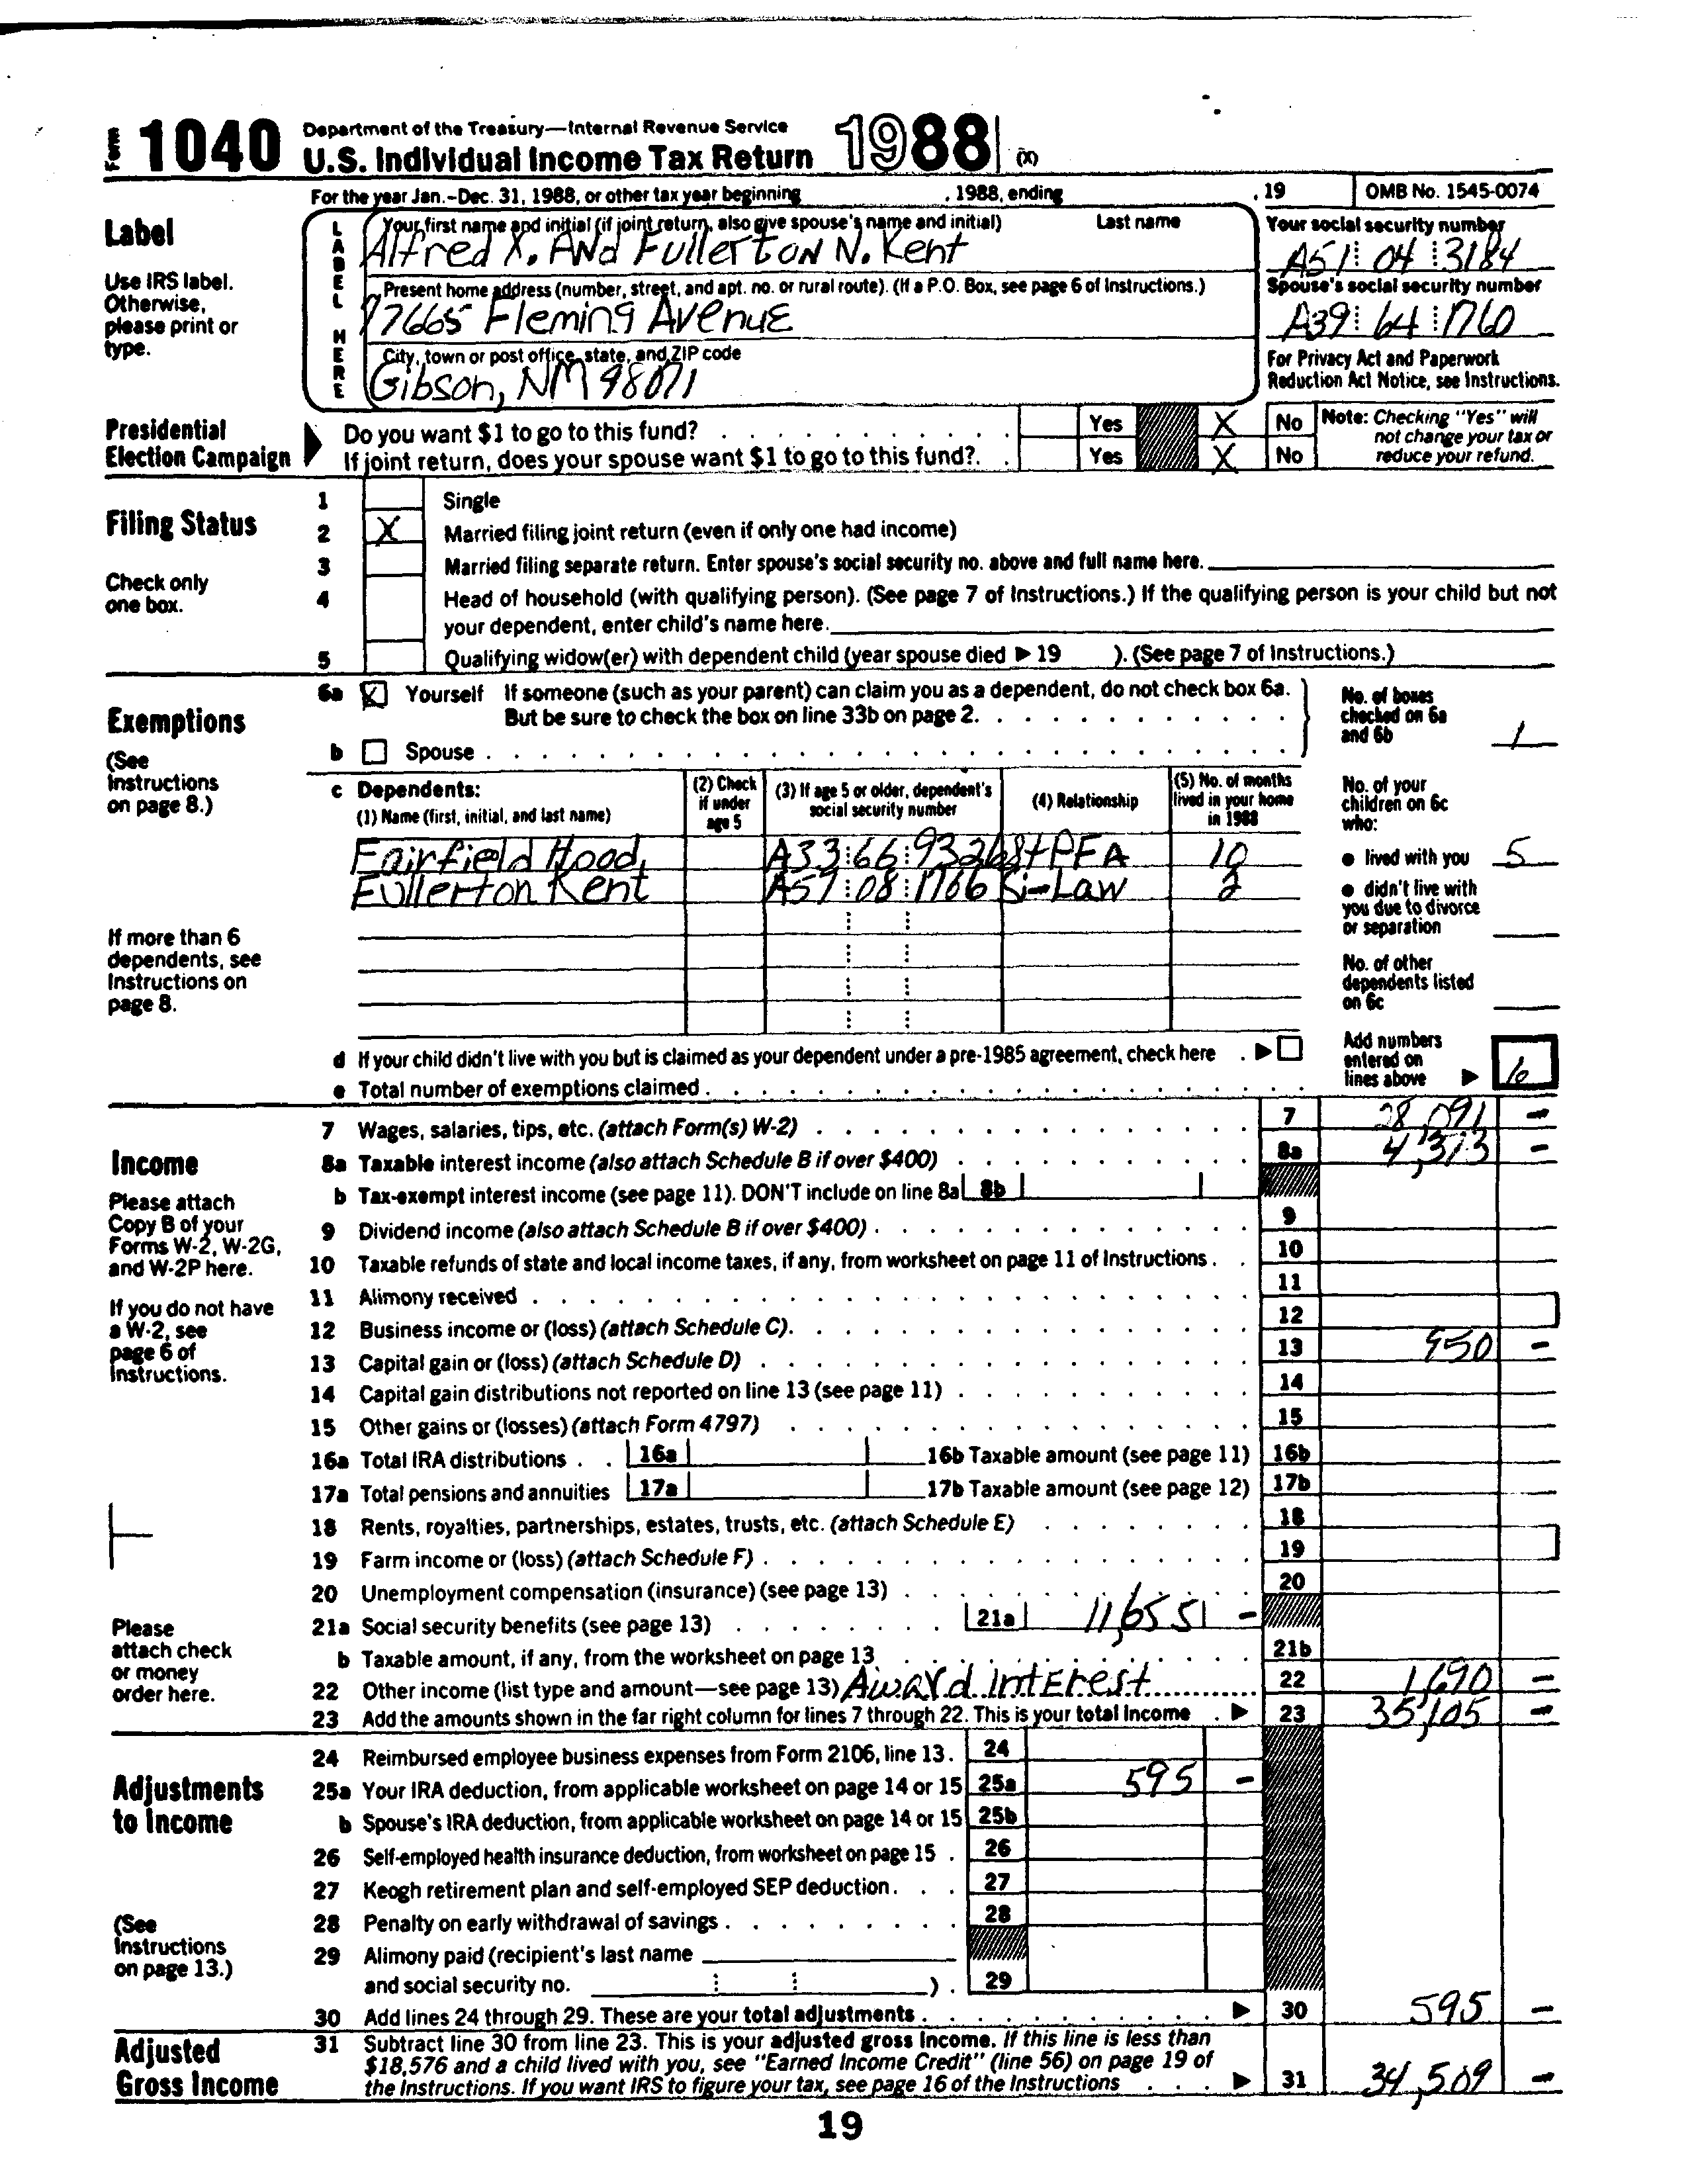 Form 1040 Department of the Treasury—Internal Revenue Service
U.S. Individual Income Tax Return 1988 (X)
For the year Jan.-Dec. 31, 1988, or other tax year beginning , 1988, ending , 19 OMB No. 1545-0074
Label
Use IRS label.
Otherwise,
please print or
type.
LABEL HERE
Your first name and initial (if joint return, also give spouse's name and initial) Last name
Alfred X. ANd FullErtoN N. Kent
Your social security number
A51 04 3184
Present home address (number, street, and apt. no. or rural route). (If a P.O. Box, see page 6 of Instructions.)
97665 Fleming AvenuE
Spouse's social security number
A39 64 1760
City, town or post office, state, and ZIP code
Gibson, NM 98071
For Privacy Act and Paperwork
Reduction Act Notice, see Instructions.
Presidential
Election Campaign
Do you want $1 to go to this fund? Yes X No
If joint return, does your spouse want $1 to go to this fund? Yes X No
Note: Checking "Yes" will
not change your tax or
reduce your refund.
Filing Status
Check only
one box.
1 Single
2 X Married filing joint return (even if only one had income)
3 Married filing separate return. Enter spouse's social security no. above and full name here.
4 Head of household (with qualifying person). (See page 7 of Instructions.) If the qualifying person is your child but not
your dependent, enter child's name here.
5 Qualifying widow(er) with dependent child (year spouse died ▶ 19 ). (See page 7 of Instructions.)
Exemptions
(See
Instructions
on page 8.)
6a X Yourself If someone (such as your parent) can claim you as a dependent, do not check box 6a.
But be sure to check the box on line 33b on page 2.
b Spouse
No. of boxes
checked on 6a
and 6b 1
c Dependents:
(1) Name (first, initial, and last name)
(2) Check
if under
age 5
(3) If age 5 or older, dependent's
social security number
(4) Relationship
(5) No. of months
lived in your home
in 1988
Fairfield Hood A33 66 9326 St PFA 10
FullErton Kent A57 08 1766 Si-Law 2
If more than 6
dependents, see
Instructions on
page 8.
No. of your
children on 6c
who:
● lived with you 5
● didn't live with
you due to divorce
or separation
No. of other
dependents listed
on 6c
d If your child didn't live with you but is claimed as your dependent under a pre-1985 agreement, check here ▶
e Total number of exemptions claimed
Add numbers
entered on
lines above ▶ 6
Income
Please attach
Copy B of your
Forms W-2, W-2G,
and W-2P here.
If you do not have
a W-2, see
page 6 of
Instructions.
Please
attach check
or money
order here.
7 Wages, salaries, tips, etc. (attach Form(s) W-2) 7 28,091 -
8a Taxable interest income (also attach Schedule B if over $400) 8a 4,373 -
b Tax-exempt interest income (see page 11). DON'T include on line 8a 8b
9 Dividend income (also attach Schedule B if over $400) 9
10 Taxable refunds of state and local income taxes, if any, from worksheet on page 11 of Instructions 10
11 Alimony received 11
12 Business income or (loss) (attach Schedule C) 12
13 Capital gain or (loss) (attach Schedule D) 13 950 -
14 Capital gain distributions not reported on line 13 (see page 11) 14
15 Other gains or (losses) (attach Form 4797) 15
16a Total IRA distributions 16a 16b Taxable amount (see page 11) 16b
17a Total pensions and annuities 17a 17b Taxable amount (see page 12) 17b
18 Rents, royalties, partnerships, estates, trusts, etc. (attach Schedule E) 18
19 Farm income or (loss) (attach Schedule F) 19
20 Unemployment compensation (insurance) (see page 13) 20
21a Social security benefits (see page 13) 21a 11,655 -
b Taxable amount, if any, from the worksheet on page 13 21b
22 Other income (list type and amount—see page 13) Award IntErest 22 1,690 -
23 Add the amounts shown in the far right column for lines 7 through 22. This is your total income ▶ 23 35,105 -
Adjustments
to Income
(See
Instructions
on page 13.)
24 Reimbursed employee business expenses from Form 2106, line 13. 24
25a Your IRA deduction, from applicable worksheet on page 14 or 15 25a 595 -
b Spouse's IRA deduction, from applicable worksheet on page 14 or 15 25b
26 Self-employed health insurance deduction, from worksheet on page 15 26
27 Keogh retirement plan and self-employed SEP deduction 27
28 Penalty on early withdrawal of savings 28
29 Alimony paid (recipient's last name
and social security no. ) 29
30 Add lines 24 through 29. These are your total adjustments ▶ 30 595 -
Adjusted
Gross Income
31 Subtract line 30 from line 23. This is your adjusted gross income. If this line is less than
$18,576 and a child lived with you, see "Earned Income Credit" (line 56) on page 19 of
the Instructions. If you want IRS to figure your tax, see page 16 of the Instructions ▶ 31 34,509 -
19